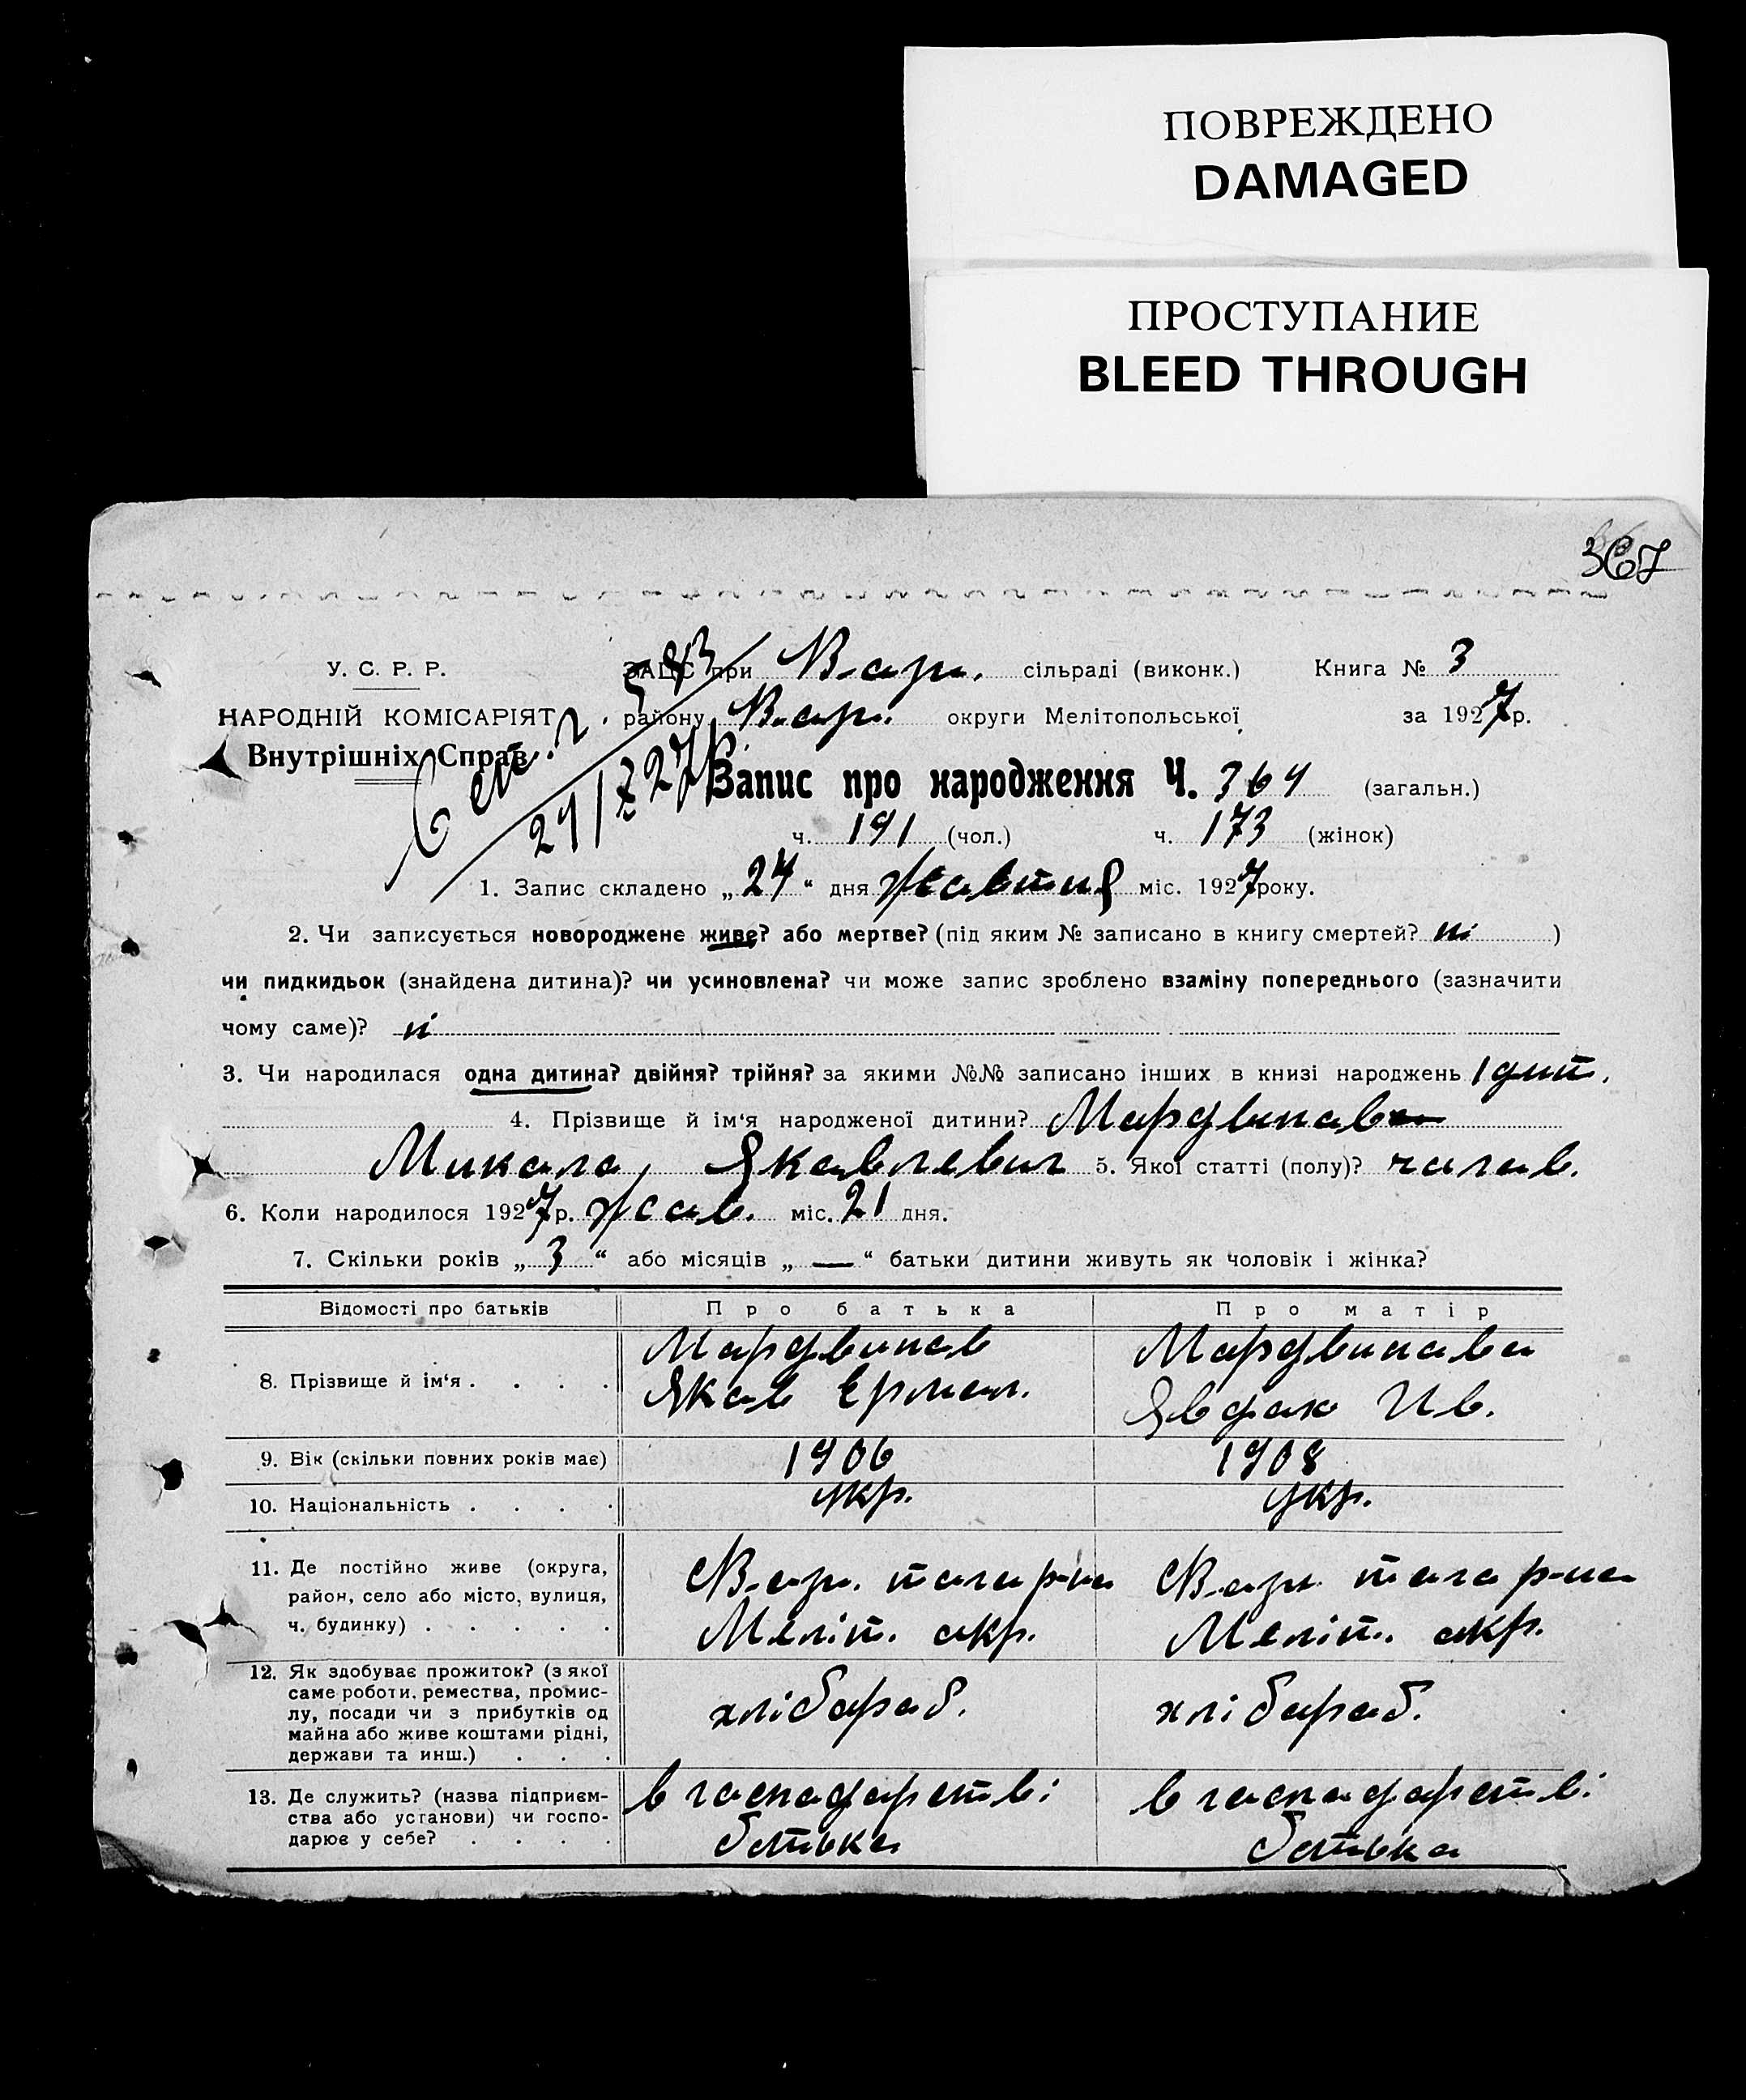 ПОВРЕЖДЕНО
DAMAGED
ПРОСТУПАНИЕ
BLEED THROUGH
367
У. С. Р. Р.
ЗАЦС при В-ар. сільраді (виконк.) Книга № 3
НАРОДНІЙ КОМІСАРІЯТ району В-ар. округи Мелітопольської за 1927 р.
Внутрішніх Справ
Запис про народження Ч. 364 (загальн.)
ч. 191 (чол.) ч. 173 (жінок)
1. Запис складено „24“ дня жовтня міс. 1927 року.
2. Чи записується новороджене живе? або мертве? (під яким № записано в книгу смертей? ні)
чи пидкидьок (знайдена дитина)? чи усиновлена? чи може запис зроблено взаміну попереднього (зазначити
чому саме)? ні
3. Чи народилася одна дитина? двійня? трійня? за якими №№ записано інших в книзі народжень 1 дит.
4. Прізвище й ім‘я народженої дитини? Мордвинов
Микола, Яковлевич 5. Якої статті (полу)? чолов.
6. Коли народилося 1927 р. жов. міс. 21 дня.
7. Скільки років „3“ або місяців „—“ батьки дитини живуть як чоловік і жінка?
Відомості про батьків Про батька Про матір
8. Прізвище й ім‘я . . . . Мордвинов Мордвинова
Яков Ермол. Явдок Ив.
9. Вік (скільки повних років має) 1906 1908
10. Національність . . . . укр. укр.
11. Де постійно живе (округа,
район, село або місто, вулиця,
ч. будинку) . . . . .
В-ар. того р-на В-ар. того р-на
Меліт. окр. Меліт. окр.
12. Як здобуває прожиток? (з якої
саме роботи, ремества, промис-
лу, посади чи з прибутків од
майна або живе коштами рідні,
держави та инш.) . . .
хлібороб. хлібороб.
13. Де служить? (назва підприєм-
ства або установи) чи госпо-
дарює у себе? . . . .
в господарстві в господарстві
батька батька